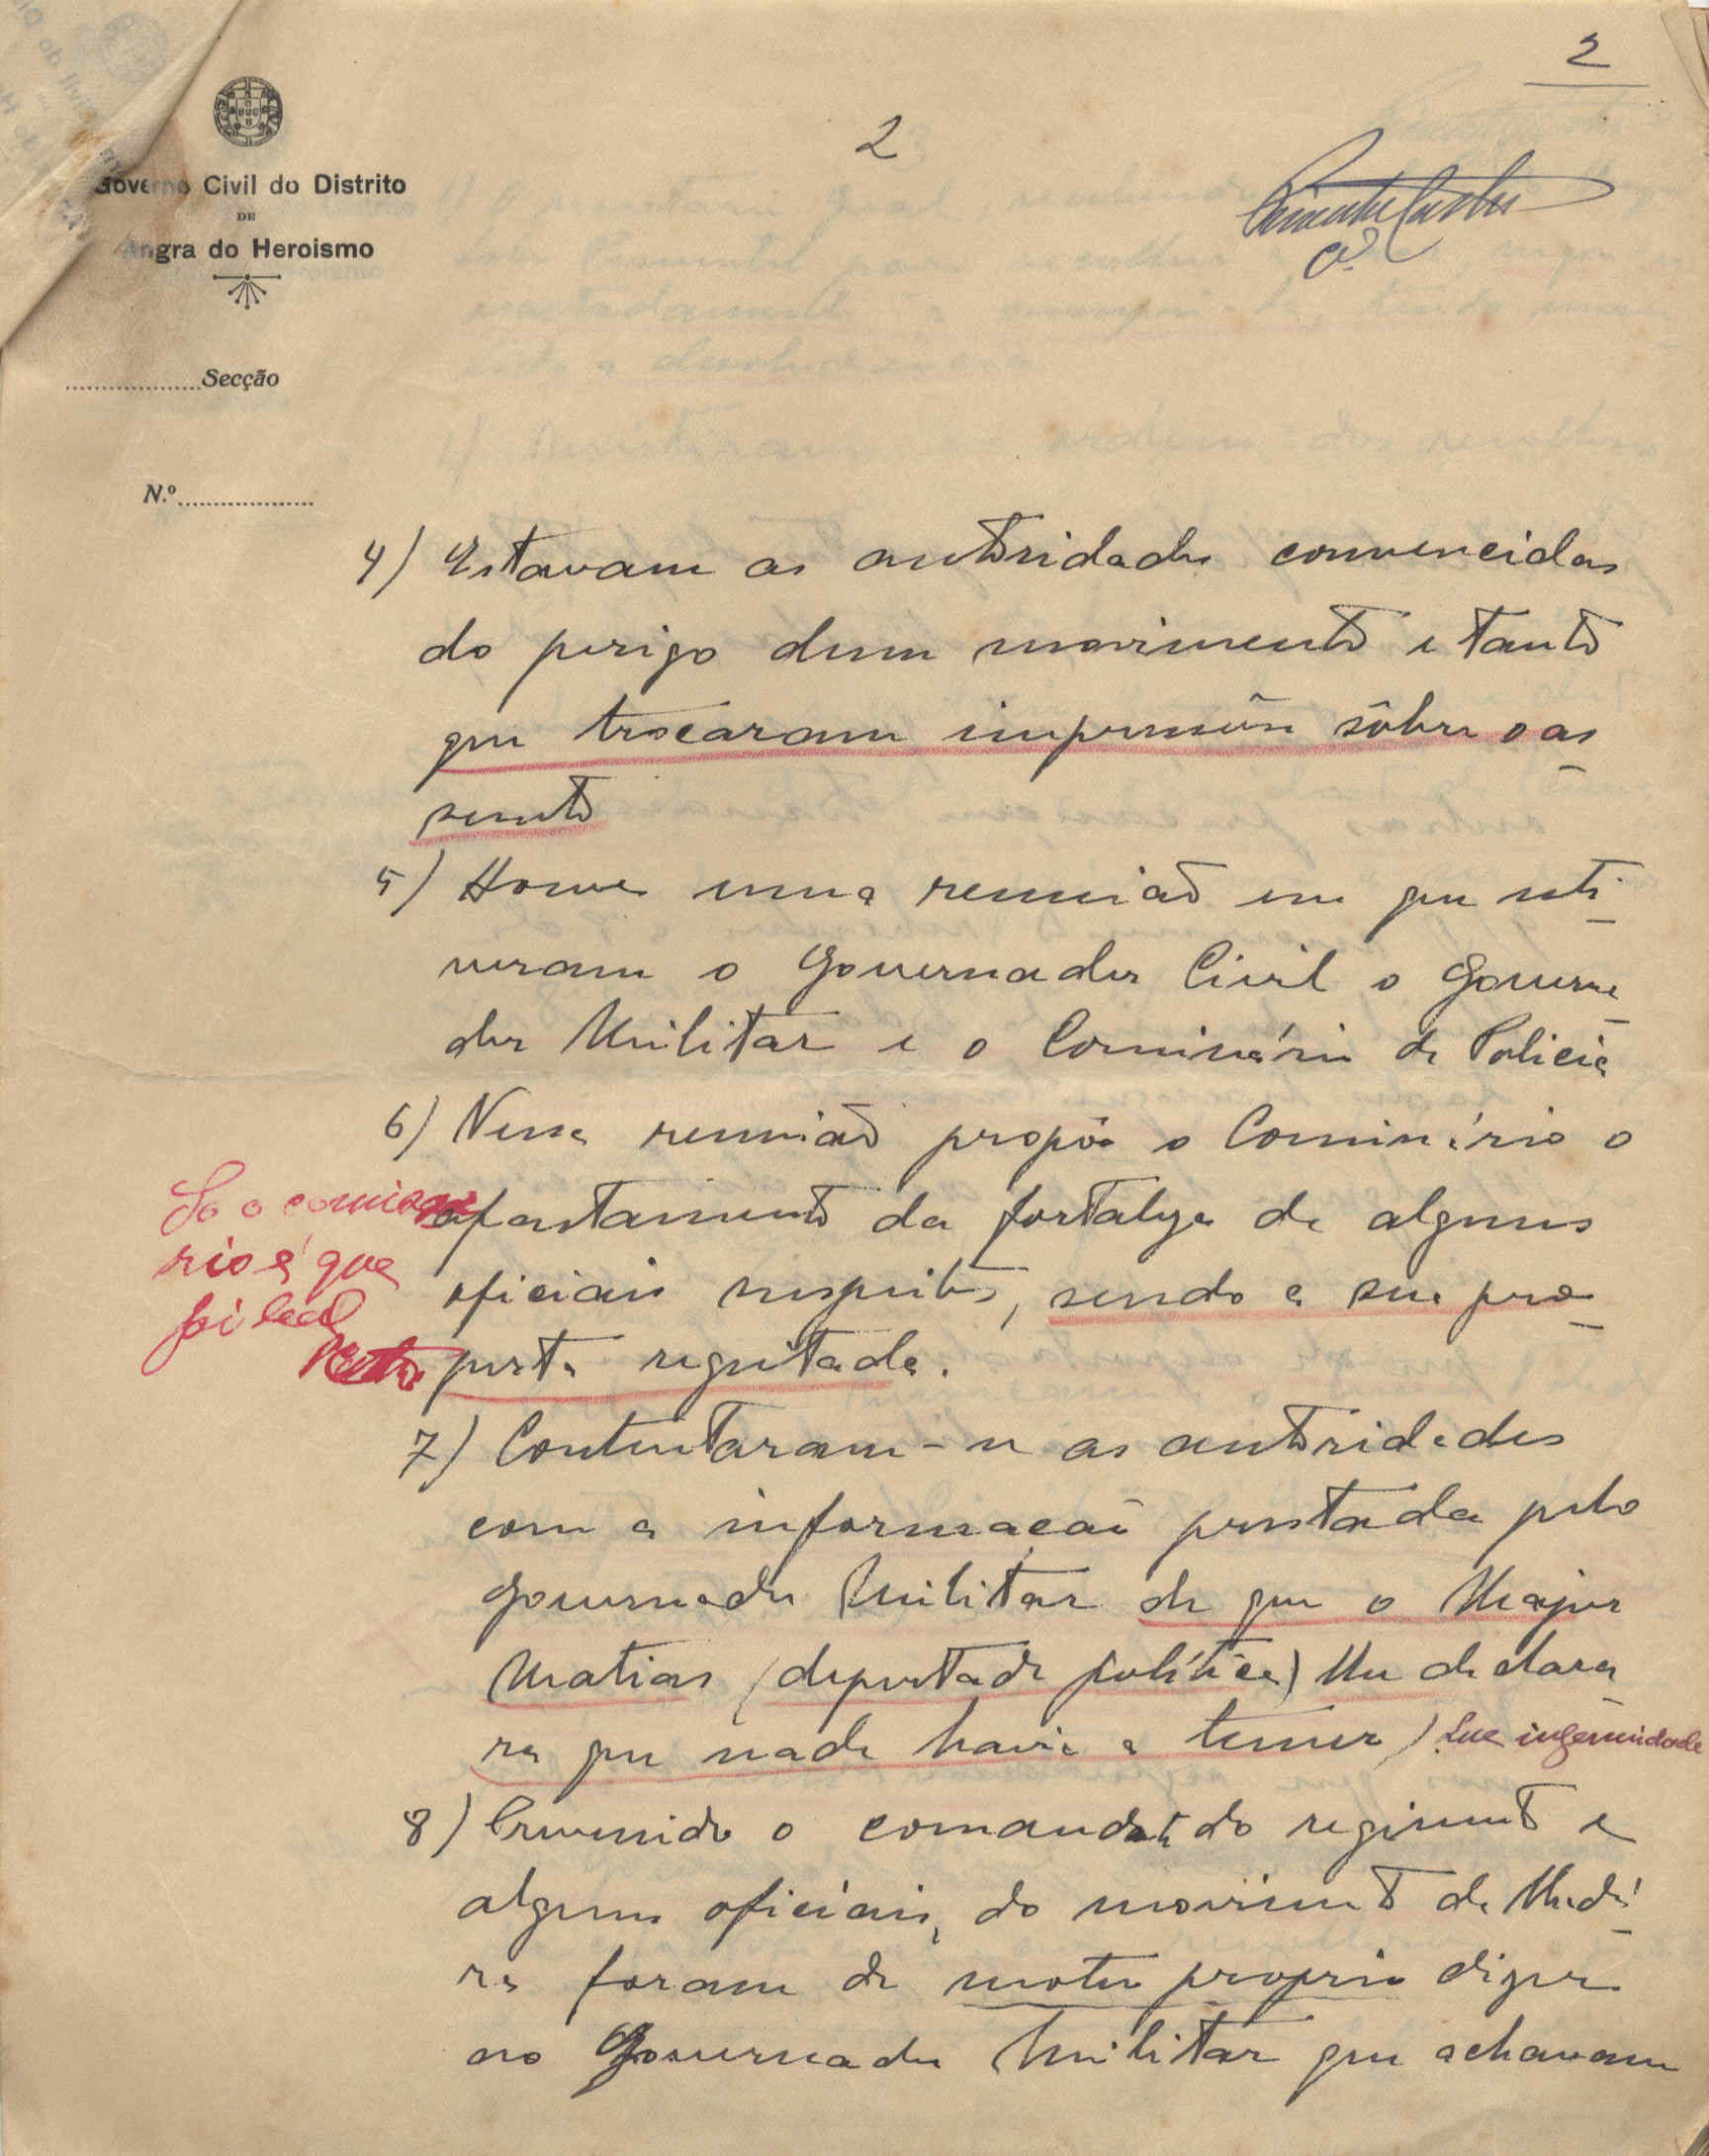 2
2
Governo Civil do Distrito
DE
Angra do Heroismo
Secção
N.º
4) Estavam as autoridades convencidas
do perigo dum movimento e tanto
que trocaram impressões sôbre o as-
sunto
5) Houve uma reunião em que esti-
veram o Governador Civil o Governa-
dor Militar e o Comissário de Policia
6) Nessa reunião propôs o Comissário o
afastamento da fortalesa de alguns
oficiais suspeitos, sendo a sua pro-
posta regeitada.
Só o comissa
rio é que
foi leal
7) Contentaram-se as autoridades
com a informação prestada pelo
Governador Militar de que o Major
Matias (deportado político) lhe declara-
ra que nada havia a temer) Que ingenuidade
8) Prevenido o comandante do regimento e
alguns oficiais, do movimento da Madei-
ra foram de motu proprio dizer
ao Governador Militar que achavam